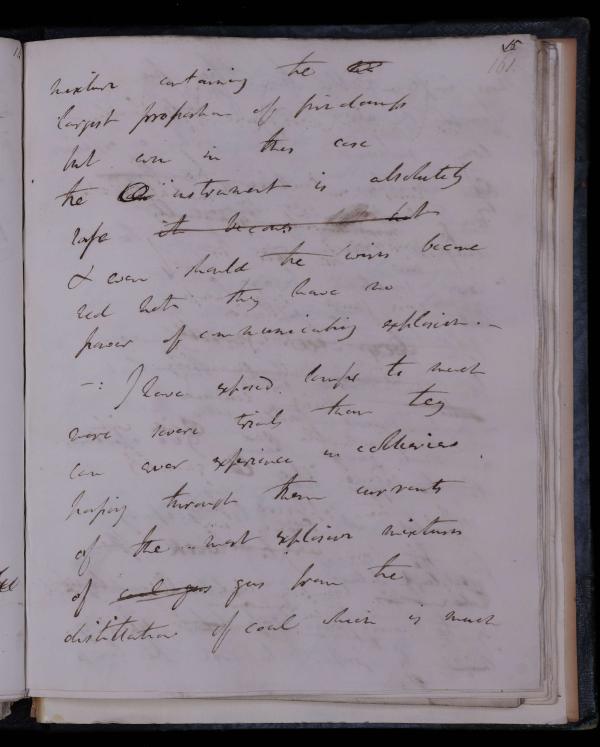 15
161
mixture containing the
largest proportion of firedamp
but even in this case
the instrument is absolutely
safe it becomes hot
& even should the wires become
red hot they have no
power of communicating explosion. —
—: I have exposed lamps to much
more severe trials than they
can ever experience in collieries.
passing through them currents
of the most explosive mixtures
of coal gas gas from the
distillation of coal which is much